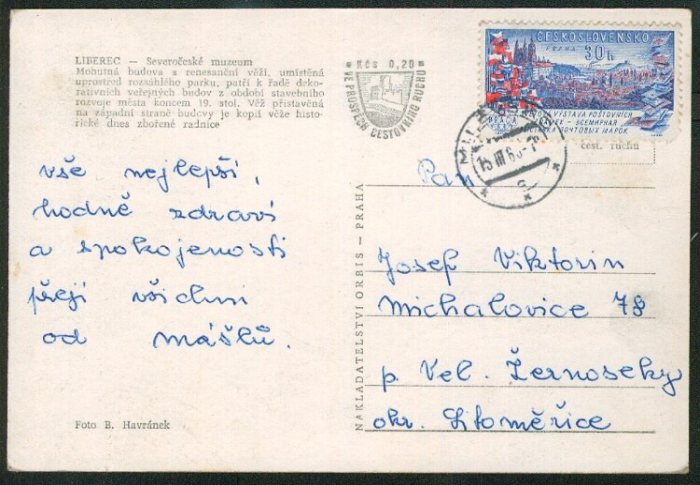 LIBEREC – Severočeské muzeum
Mohutná budova s renesanční věží, umístěná
uprostřed rozsáhlého parku, patří k řadě deko-
rativních veřejných budov z období stavebního
rozvoje města koncem 19. stol. Věž přistavěná
na západní straně budovy je kopií věže histo-
rické dnes zbořené radnice
Kčs 0,20
VE PROSPĚCH CESTOVNÍHO RUCHU
ČESKOSLOVENSKO
PRAHA
30h
VÝSTAVA POŠTOVNÍCH
ВСЕМИРНАЯ
ПОЧТОВЫХ МАРОК
15 III 6
cest. ruchu
vše nejlepší,
hodně zdraví
a spokojenosti
přejí všichni
od mášlů.
Foto B. Havránek
NAKLADATELSTVÍ ORBIS – PRAHA
Pan
Josef Viktorin
Michalovice 78
p. Vel. Žernoseky
okr. Litoměřice